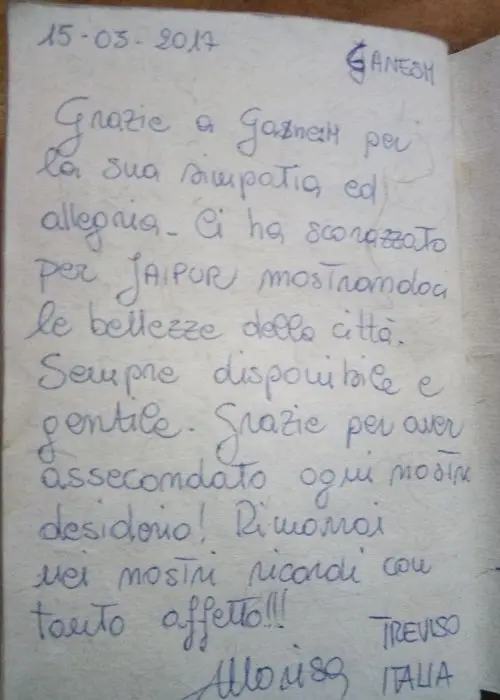 15-03-2017
GANESH
Grazie a Ganesh per
la sua simpatia ed
allegria. Ci ha scorazzato
per JAIPUR mostrandoci
le bellezze della città.
Sempre disponibile e
gentile. Grazie per aver
assecondato ogni nostro
desiderio! Rimarrai
nei nostri ricordi con
tanto affetto!!!
TREVISO
ITALIA